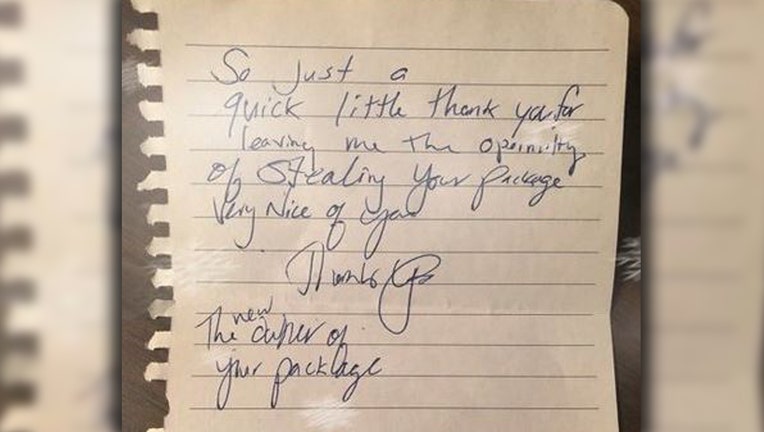 So Just a
quick little thank you for
leaving me the oppinuilty
of Stealing your package
Very Nice of you
Thanks
new
The owner of
your package